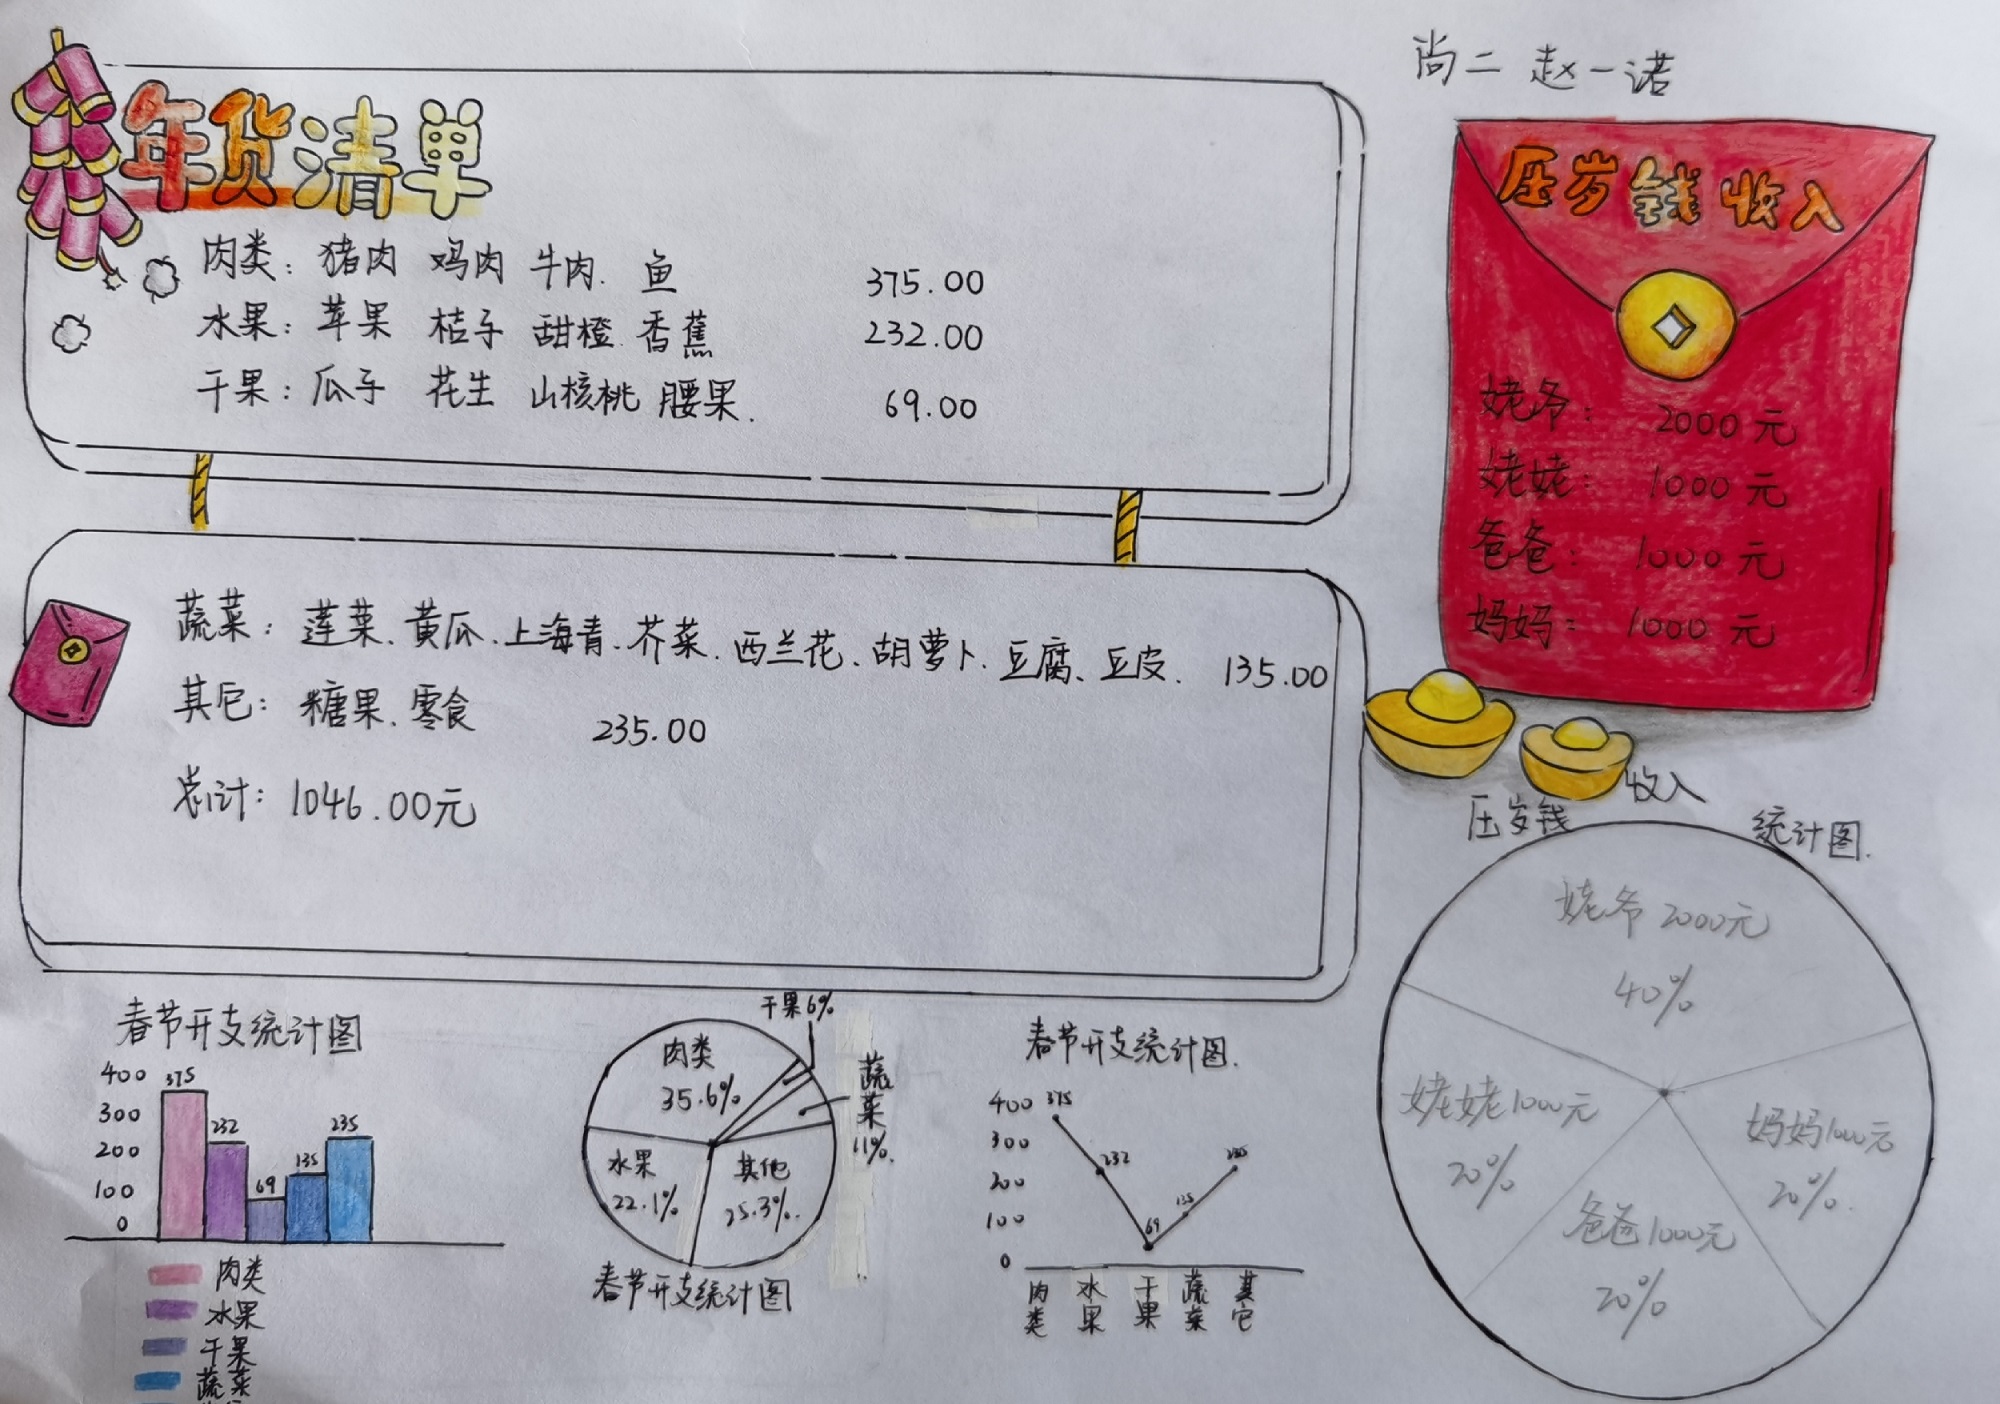 尚二 赵一诺
年货清单
肉类：猪肉 鸡肉 牛肉. 鱼 375.00
水果：苹果 桔子 甜橙 香蕉 232.00
干果：瓜子 花生 山核桃 腰果. 69.00
蔬菜：莲菜、黄瓜、上海青、芥菜、西兰花、胡萝卜、豆腐、豆皮. 135.00
其它：糖果、零食 235.00
总计：1046.00元
压岁钱收入
姥爷：2000元
姥姥：1000元
爸爸：1000元
妈妈：1000元
压岁钱收入统计图.
姥爷2000元
40%
姥姥1000元
20%
妈妈1000元
20%.
爸爸1000元
20%
春节开支统计图
400
300
200
100
0
375
232
69
135
235
肉类
水果
干果
蔬菜
干果6%
肉类
35.6%
蔬菜11%.
水果
22.1%
其他
25.3%.
春节开支统计图
春节开支统计图.
400
300
200
100
0
375
232
69
135
235
肉类
水果
干果
蔬菜
其它